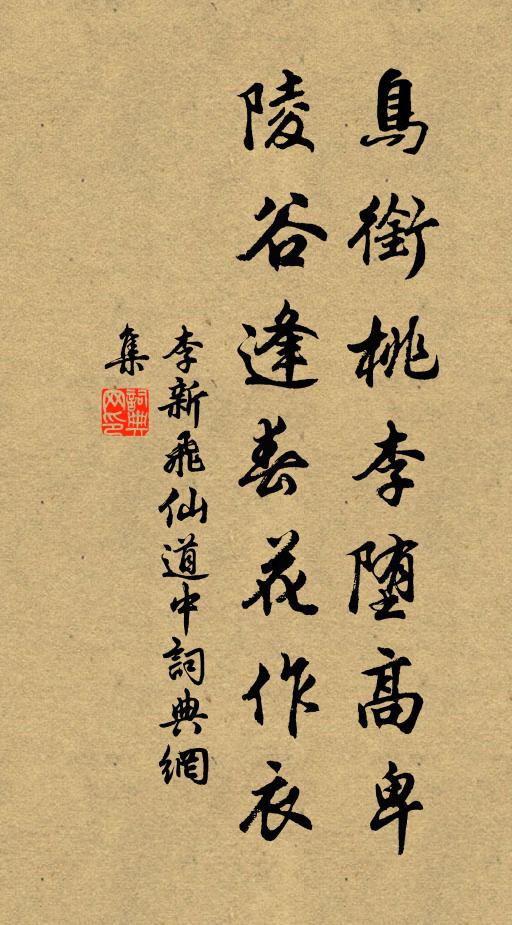 鳥銜桃李墮高卑
陵谷逢春花作衣
李新飛仙道中詞典網
集
詞典
网印